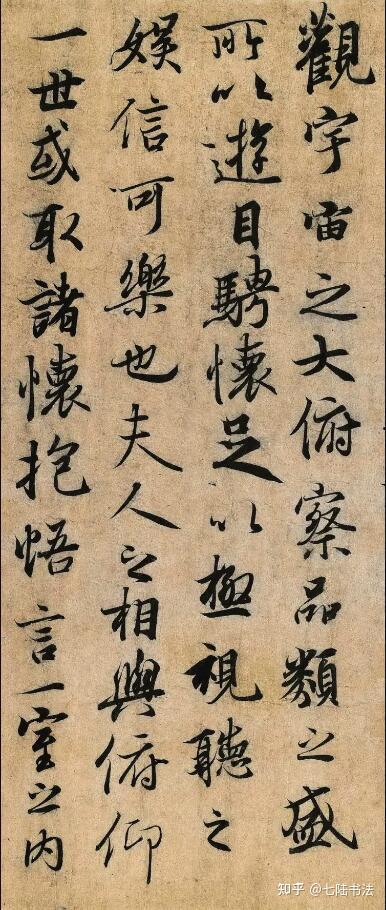 觀宇宙之大俯察品類之盛
所以遊目騁懷足以極視聽之
娛信可樂也夫人之相與俯仰
一世或取諸懷抱悟言一室之內
知乎 @七陆书法